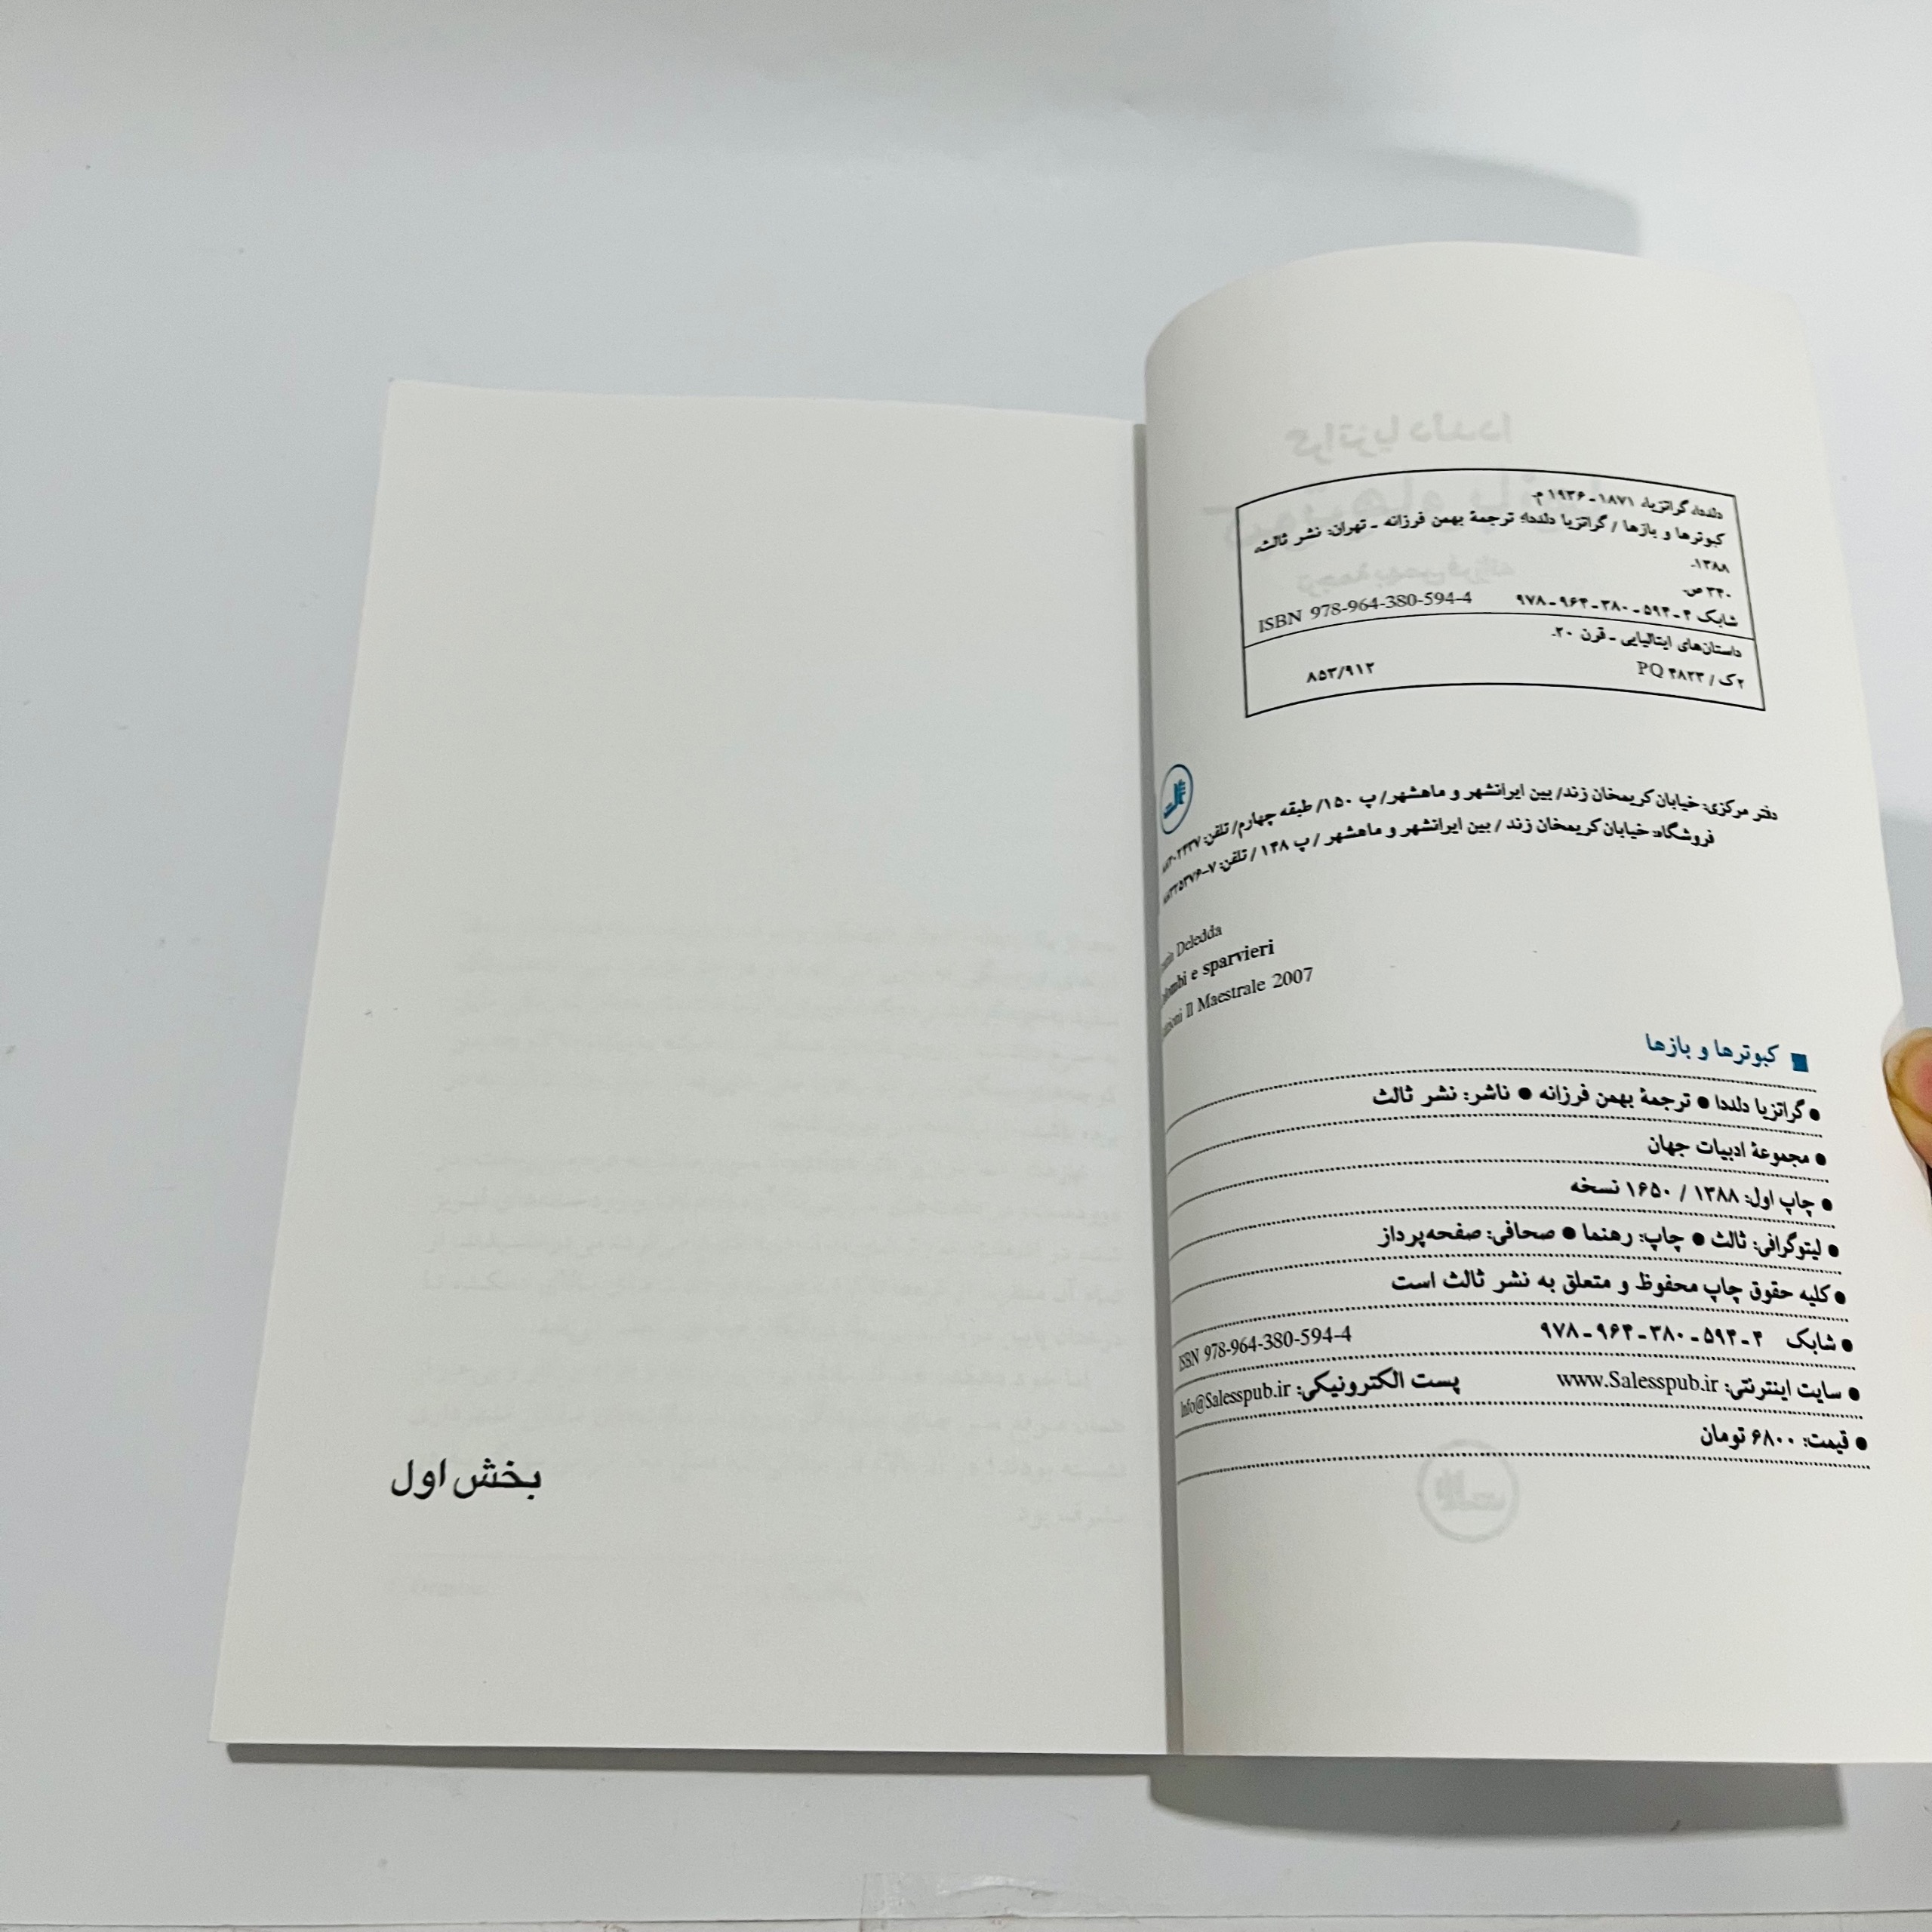 دلددا، گراتزیا، ۱۸۷۱ - ۱۹۳۶ م.
کبوترها و بازها / گراتزیا دلددا؛ ترجمهٔ بهمن فرزانه - تهران: نشر ثالث،
۱۳۸۸.
۳۴۰ ص.
شابک ۴ - ۵۹۴ - ۳۸۰ - ۹۶۴ - ۹۷۸ ISBN 978-964-380-594-4
داستان‌های ایتالیایی - قرن ۲۰.
۲ک / ۴۸۲۳ PQ ۸۵۳/۹۱۲
دفتر مرکزی: خیابان کریمخان زند/ بین ایرانشهر و ماهشهر/ پ ۱۵۰/ طبقه چهارم/ تلفن:
فروشگاه: خیابان کریمخان زند / بین ایرانشهر و ماهشهر / پ ۱۴۸ / تلفن:
Deledda
e sparvieri
Il Maestrale 2007
کبوترها و بازها
● گراتزیا دلددا ● ترجمهٔ بهمن فرزانه ● ناشر: نشر ثالث
● مجموعهٔ ادبیات جهان
● چاپ اول: ۱۳۸۸ / ۱۶۵۰ نسخه
● لیتوگرافی: ثالث ● چاپ: رهنما ● صحافی: صفحه‌پرداز
● کلیه حقوق چاپ محفوظ و متعلق به نشر ثالث است
● شابک ۴ - ۵۹۴ - ۳۸۰ - ۹۶۴ - ۹۷۸ ISBN 978-964-380-594-4
● سایت اینترنتی: www.Salesspub.ir پست الکترونیکی: Info@Salesspub.ir
● قیمت: ۶۸۰۰ تومان
بخش اول